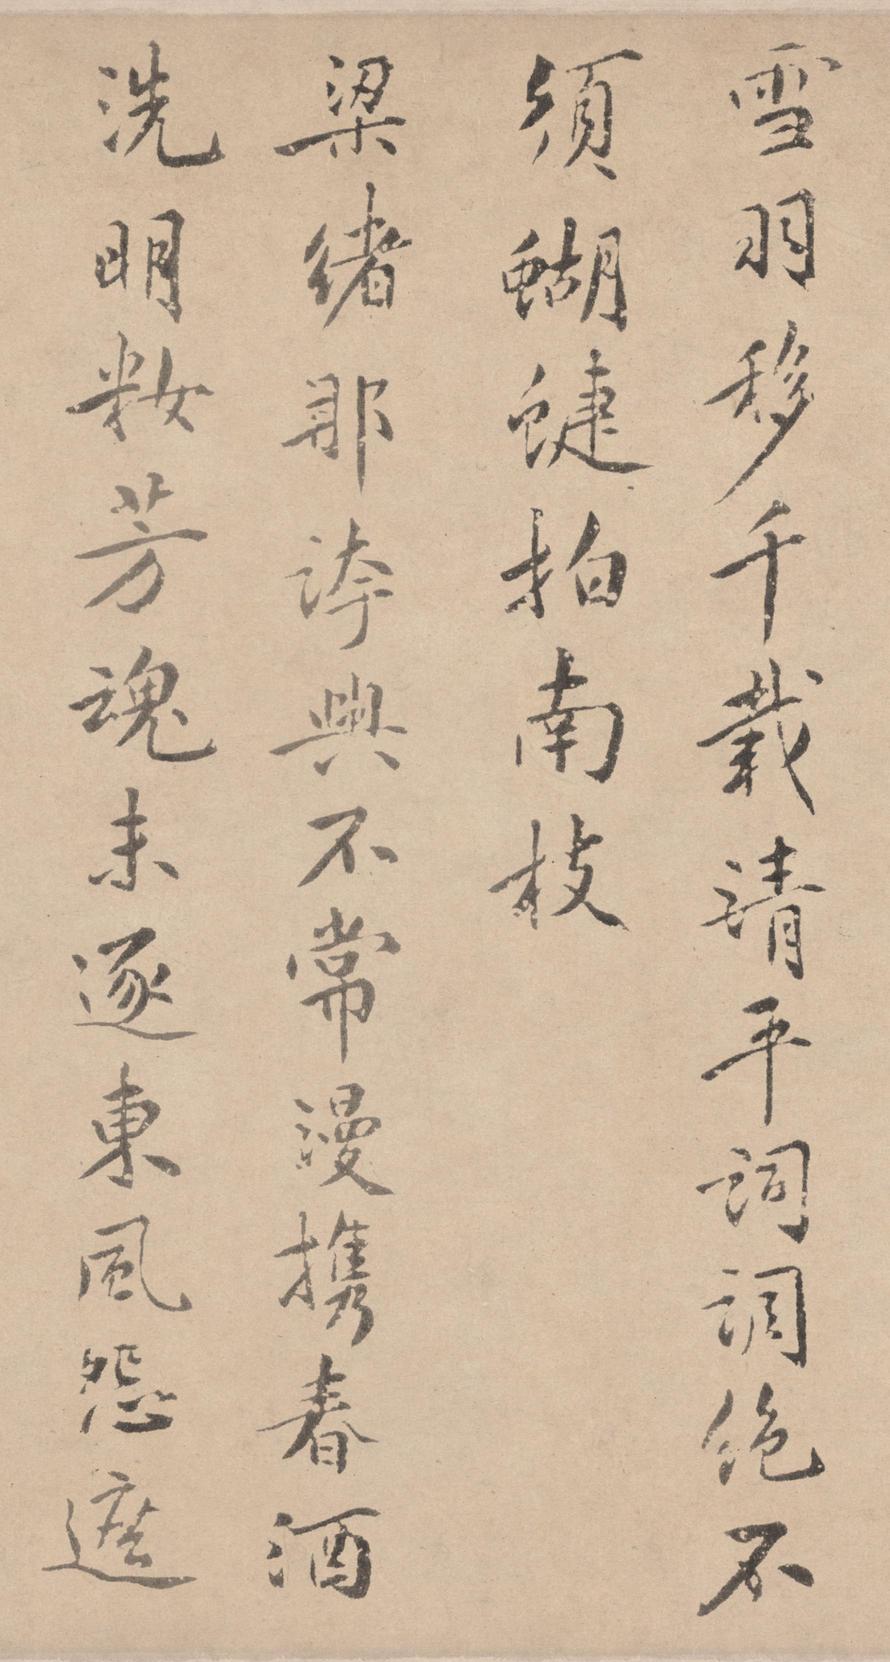 雪羽移千載清平詞調絶不
須蝴蜨拍南枝
梁緒那誇興不常漫攜春酒
洗明粧芳魂未逐東風怨遮